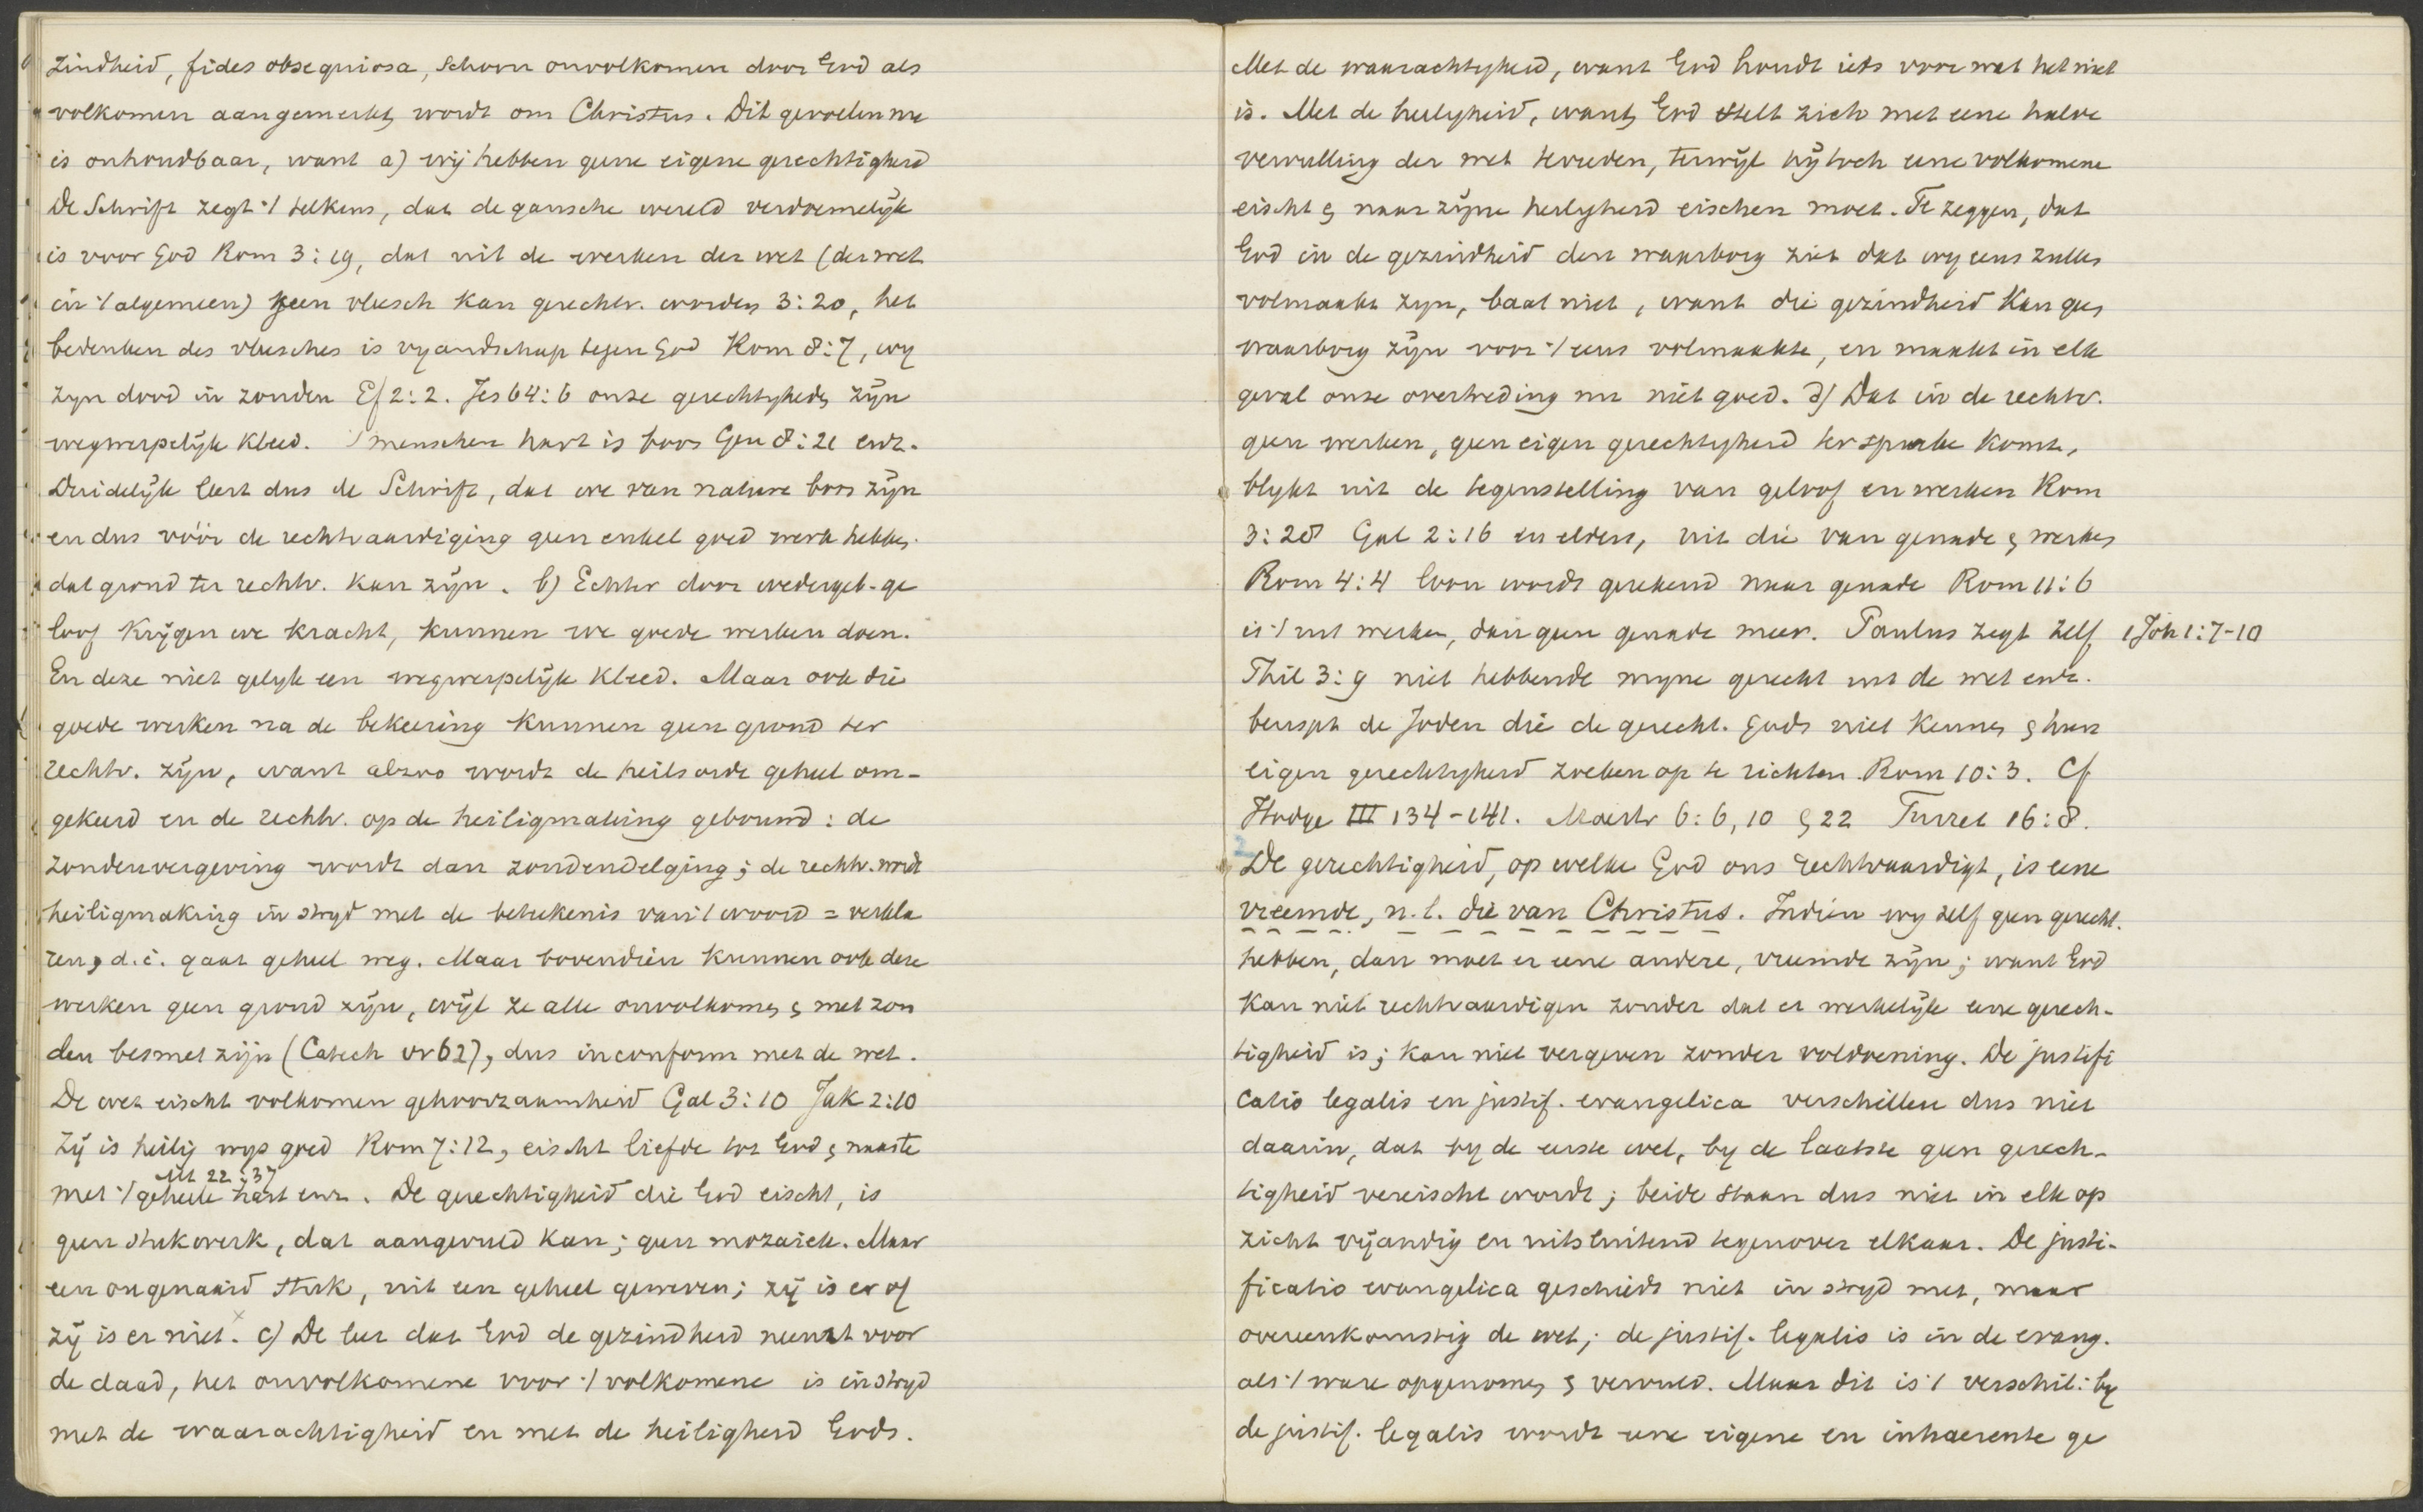 zindheid, fides obsequiosa, schoon onvolkomen door God als
volkomen aangemerkt wordt om Christus. Dit gevoelen nu
is onhoudbaar, want a) wij hebben geene eigene gerechtigheid
De Schrift zegt 't telkens, dat de gansche wereld verdoemelijk
is voor God Rom 3:19, dat uit de werken der wet (der wet
in 't algemeen) geen vleesch kan gerechtv. worden 3:20, het
bedenken des vleesches is vyandschap tegen God Rom 8:7, wy
zyn dood in zonden Ef 2:2. Jes 64:6 onze gerechtigheden zijn
wegwerpelijk kleed. 's menschen hart is boos Gen 8:21 enz.
Duidelijk leert dus de Schrift, dat we van nature boos zijn
en dus vóór de rechtvaardiging geen enkel goed werk hebben
dat grond ter rechtv. kan zijn. b) Echter door wedergeb. ge
loof krijgen we kracht, kunnen we goede werken doen.
En deze niet gelyk een wegwerpelijk kleed. Maar ook die
goede werken na de bekeering kunnen geen grond ter
rechtv. zijn, want alzoo wordt de heilsorde geheel om-
gekeerd en de rechtv. op de heiligmaking gebouwd: de
zondenvergeving wordt dan zondendelging; de rechtv. wordt
heiligmaking in stryd met de betekenis van 't woord = verkla
ren, d.i. gaat geheel weg. Maar bovendien kunnen ook deze
werken geen grond zijn, wijl ze alle onvolkomen & met zon
den besmet zijn (Catech vr 62), dus inconform met de wet.
De wet eischt volkomen gehoorzaamheid Gal 3:10 Jak 2:10
Zij is heilig wys goed Rom 7:12, eischt liefde tot God & naaste
Mt 22:37
met 't geheele hart enz. De gerechtigheid die God eischt, is
geen stukwerk, dat aangevuld kan; geen mozaiek. Maar
een ongenaaid stuk, uit een geheel geweven; zij is er of
zij is er niet. x c) De leer dat God de gezindheid neemt voor
de daad, het onvolkomene voor 't volkomene is in stryd
met de waarachtigheid en met de heiligheid Gods.
Met de waarachtigheid, want God houdt iets voor wat het niet
is. Met de heiligheid, want God stelt zich met eene halve
vervulling der wet tevreden, terwijl hij toch eene volkomene
eischt & naar zijne heiligheid eischen moet. Te zeggen, dat
God in de gezindheid den waarborg ziet dat wy eens zullen
volmaakt zyn, baat niet, want die gezindheid kan geen
waarborg zijn voor 't eens volmaakte, en maakt in elk
geval onze overtreding nu niet goed. d) Dat in de rechtv.
geen werken, geen eigen gerechtigheid ter sprake komt,
blykt uit de tegenstelling van geloof en werken Rom
3:28 Gal 2:16 en elders, uit die van genade & werken
Rom 4:4 loon wordt gerekend naar genade Rom 11:6
is 't uit werken, dan geen genade meer. Paulus zegt zelf 1 Joh 1:7-10
Phil 3:9 niet hebbende myne gerecht uit de wet enz.
berispt de Joden die de gerecht. Gods niet kennen & hun
eigen gerechtigheid zoeken op te richten Rom 10:3. Cf
Hodge III 134-141. Mastr 6:6, 10 & 22 Turret 16:8.
2 De gerechtigheid, op welke God ons rechtvaardigt, is eene
vreemde, n.l. die van Christus. Indien wy zelf geen gerecht.
hebben, dan moet er eene andere, vreemde zijn; want God
kan niet rechtvaardigen zonder dat er werkelijk eene gerech-
tigheid is; kan niet vergeven zonder voldoening. De justifi
catio legalis en justif. evangelica verschillen dus niet
daarin, dat by de eerste wel, by de laatste geen gerech-
tigheid vereischt wordt; beide staan dus niet in elk op
zicht vijandig en uitsluitend tegenover elkaar. De justi-
ficatio evangelica geschiedt niet in stryd met, maar
overeenkomstig de wet; de justif. legalis is in de evang.
als 't ware opgenomen & vervuld. Maar dit is 't verschil: by
de justif. legalis wordt eene eigene en inhaerente ge